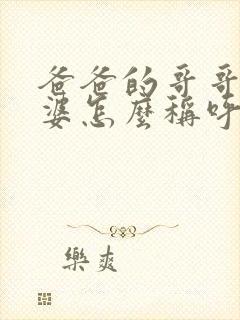 爸爸的哥哥
婆怎麼稱呼
樂爽